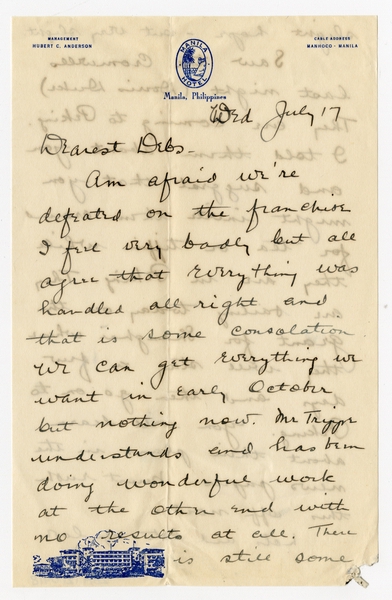 MANAGEMENT
HUBERT C. ANDERSON
MANILA
HOTEL
CABLE ADDRESS
MANHOCO - MANILA
Manila, Philippines
Wed July 17
Dearest Debs -
Am afraid we're
defeated on the franchise
I feel very badly but all
agree that everything was
handled all right and
that is some consolation
We can get everything we
want in early October
but nothing now. Mr Trippe
understands and has been
doing wonderful work
at the other end with
no results at all. There
is still some